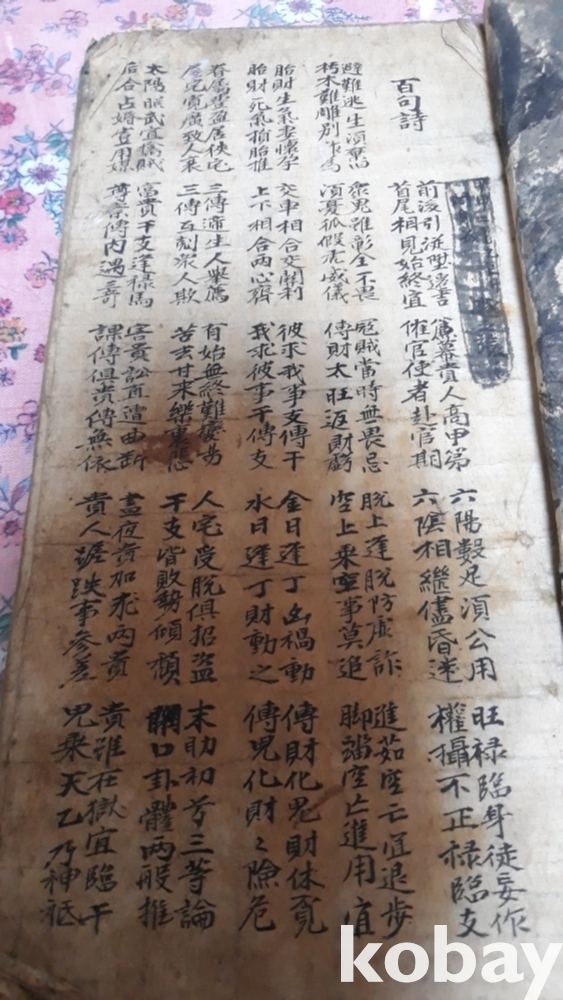 百句詩
前後引從陞遷吉
首尾相見始終宜
簾幕貴人高甲第
催官使者赴官期
六陽數足須公用
六陰相継儘昏迷
旺禄臨身徒妄作
權攝不正禄臨支
避難逃生須棄旧
朽木難雕別作為
衆鬼雖彰全不畏
須憂狐假虎威儀
冦賊當時無畏忌
傳財太旺返財虧
脫上逢脫防虛詐
空上乘空事莫追
進茹空亡宜退步
脚踏空亡進用宜
胎財生氣妻懷孕
胎財死氣損胎推
交車相合交關利
上下相合兩心齊
彼求我事支傳干
我求彼事干傳支
金日逢丁凶禍動
水日逢丁財動之
傳財化鬼財休覓
傳鬼化財〻險危
眷属豊盈居狹宅
屋宅寬廣致人衰
三傳遞生人舉薦
三傳互刻衆人欺
有始無終難變易
苦去甘來樂裏悲
人宅受脫俱招盜
干支皆敗勢傾頹
末助初兮三等論
閉口卦體兩般推
太陽照武宜擒賊
后合占婚豈用媒
富貴干支逢禄馬
尊崇傳內遇三奇
害貴訟直遭曲斷
課傳俱貴傳無依
晝夜貴加求兩貴
貴人蹉跌事參差
貴雖在獄宜臨干
鬼乘天乙乃神祇
kobay